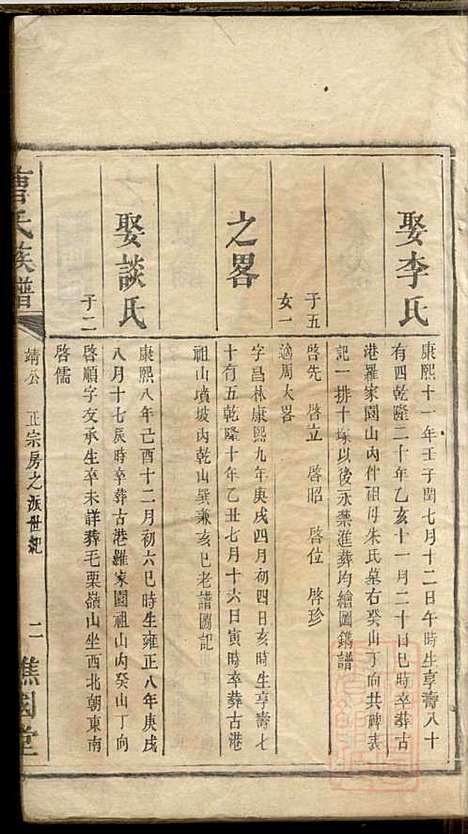 娶李氏
康熙十一年壬子閏七月十二日午時生享壽八十
有四乾隆二十年乙亥十一月二十日巳時卒葬古
港羅家園山內件祖母朱氏墓右癸山丁向共碑表
記一排十塚以後永禁進葬均繪圖鐫譜
子五
啓先 啓立 啓昭 啓位 啓珍
女一
適周大畧
之畧
字昌林康熙九年庚戌四月初四日亥時生享壽七
十有五乾隆十年乙丑七月十六日寅時卒葬古港
祖山墳坡內乾山巽兼亥巳老譜圖記
娶談氏
康熙八年己酉十二月初六巳時生雍正八年庚戌
八月十七辰時卒葬古港羅家園祖山內癸山丁向
子二
啓順字友承生卒未詳葬毛栗嶺山坐西北朝東南
啓儒
曹氏族譜
靖公 正宗房之派世紀
二
譙國堂